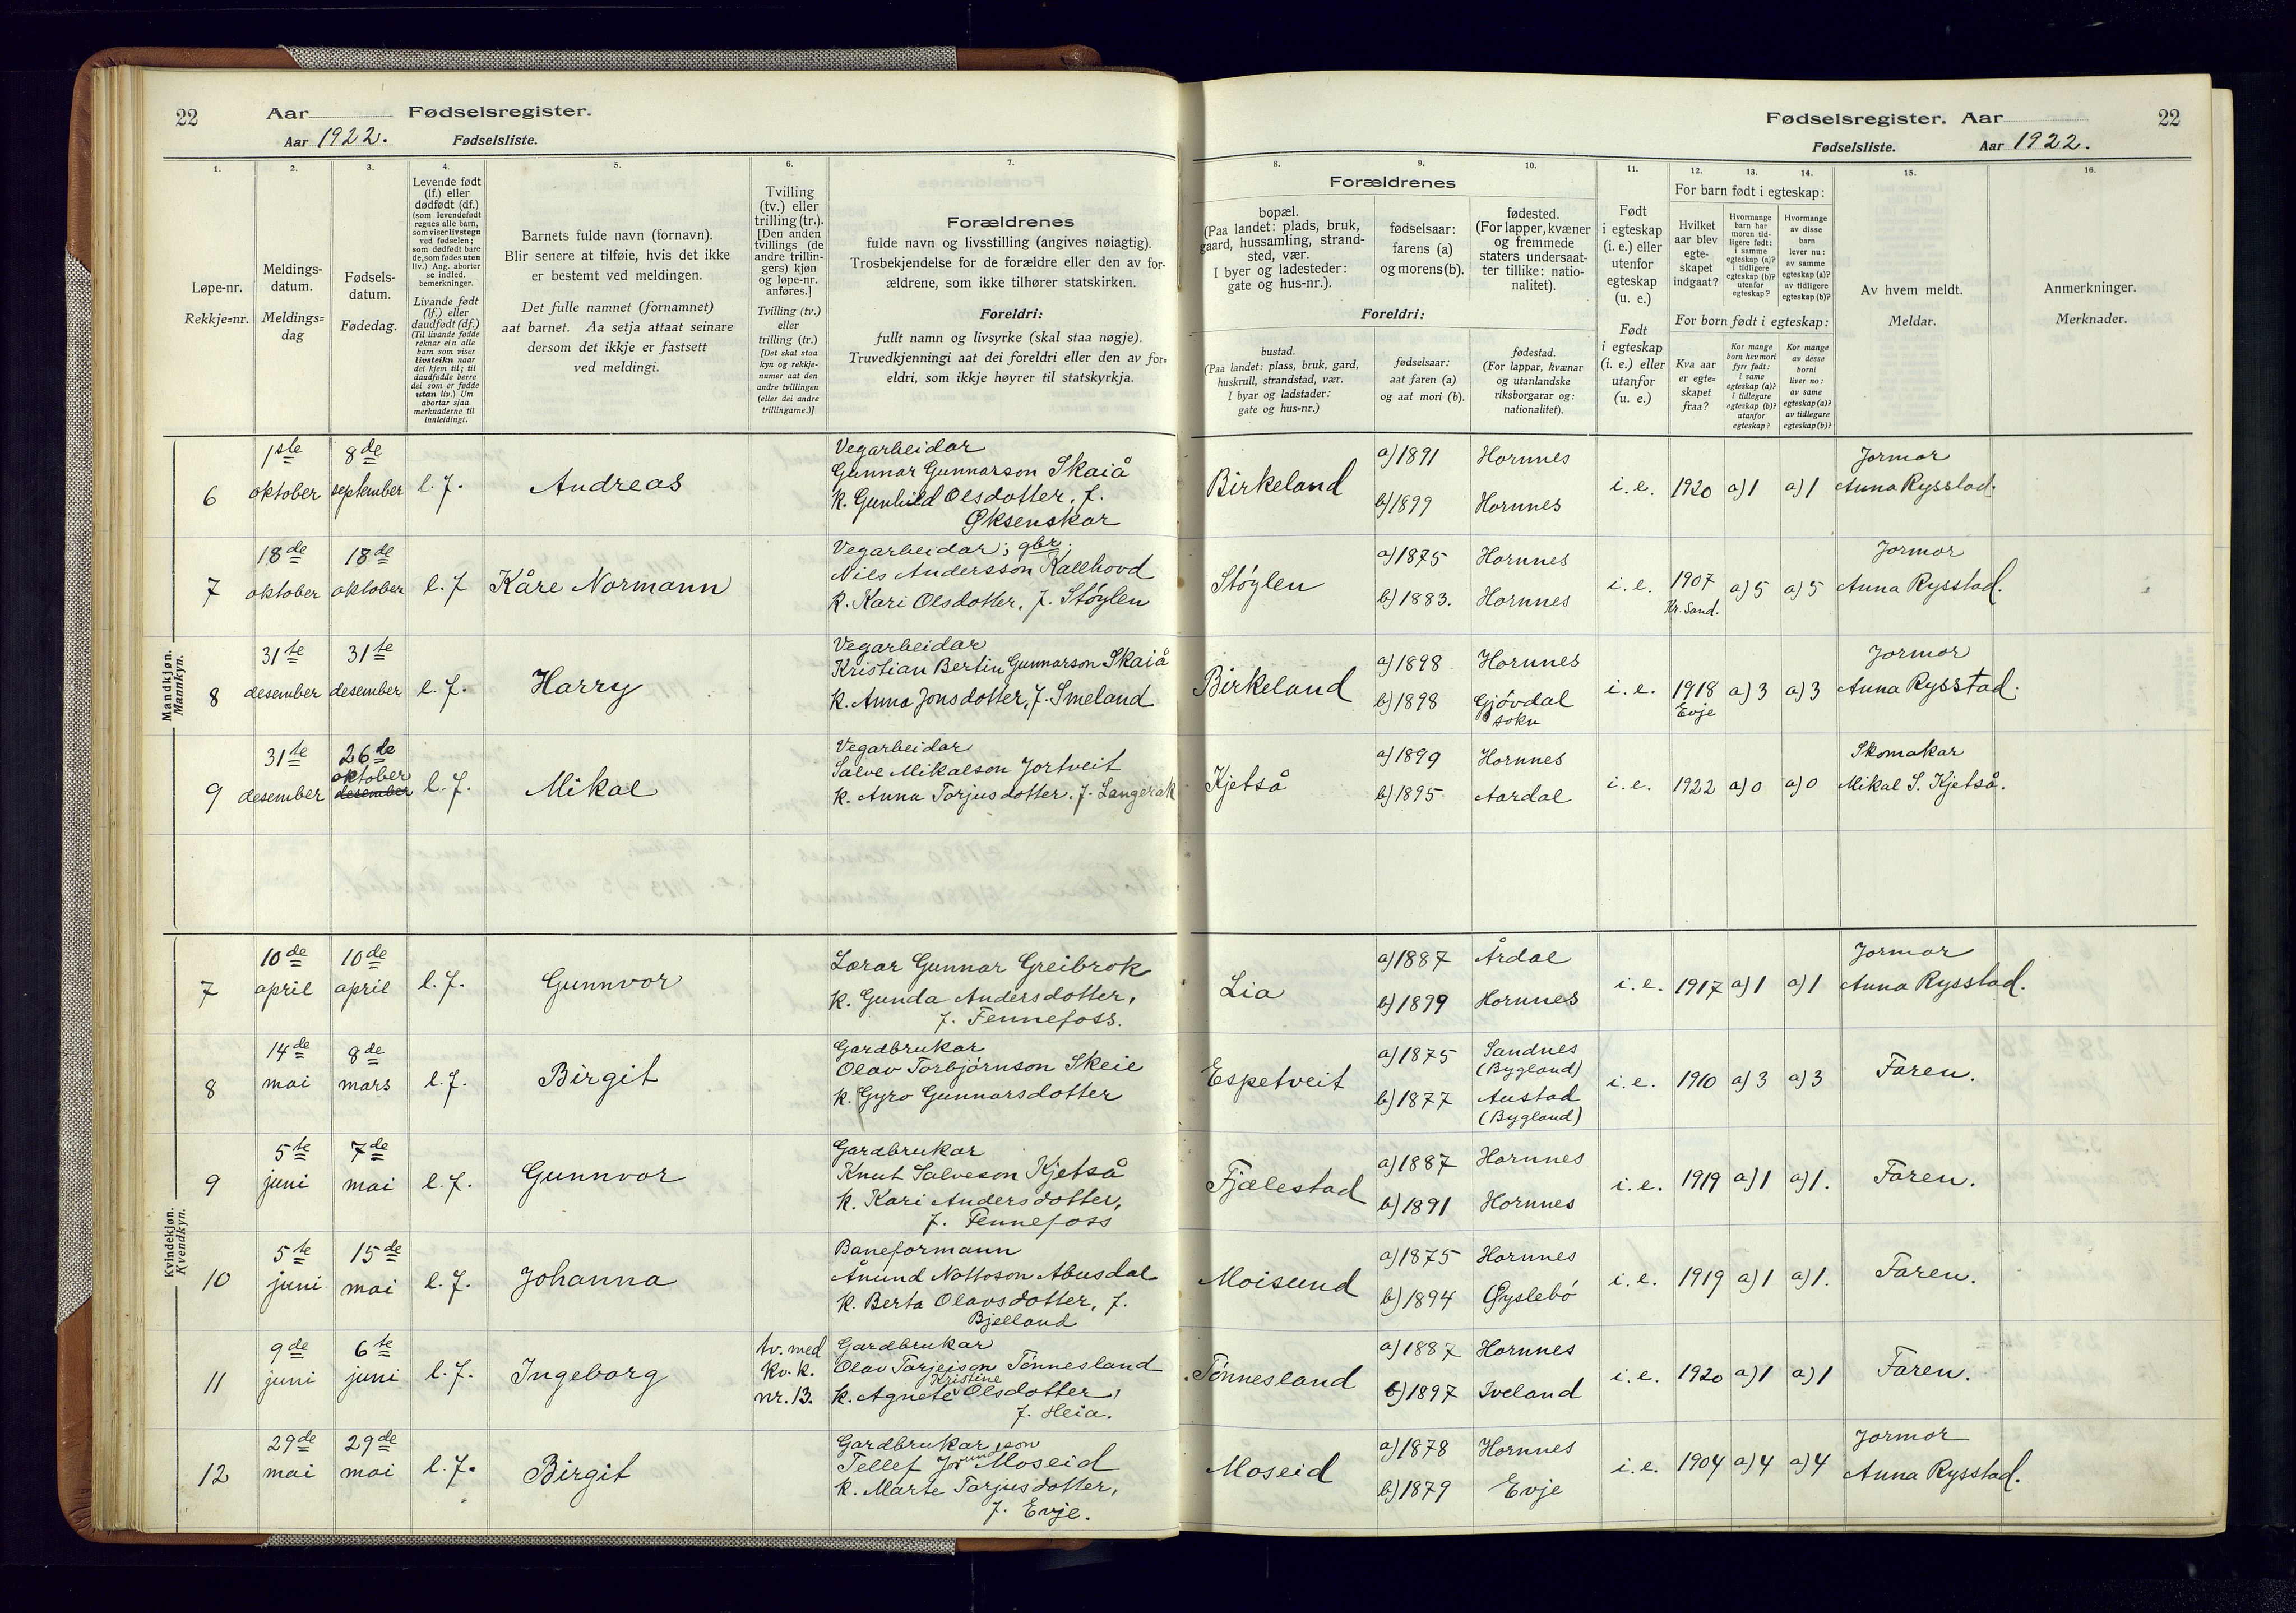 22
Aar Fødselsregister.
Aar 1922. Fødselsliste.
1.
2.
3.
4.
5.
6.
7.
Løpe-nr.
Rekkje=nr.
Meldings-
datum.
Meldings=
dag
Fødsels-
datum.
Fødedag.
Levende født
(lf.) eller
dødfødt (df.)
(som levendefødt
regnes alle barn,
som viser livstegn
ved fødselen;
som dødfødt bare
de, som fødes uten
liv.) Ang. aborter
se indled.
bemerkninger.
Livande født
(lf.) eller
daudfødt (df.)
(Til livande fødde
reknar ein alle
barn som viser
livsteikn naar
dei kjem til; til
daudfødde berre
dei som er fødde
utan liv.) Um
abortar sjaa
merknaderne til
innleidingi.
Barnets fulde navn (fornavn).
Blir senere at tilføie, hvis det ikke
er bestemt ved meldingen.
Det fulle namnet (fornamnet)
aat barnet. Aa setja attaat seinare
dersom det ikkje er fastsett
ved meldingi.
Tvilling
(tv.) eller
trilling (tr.).
[Den anden
tvillings (de
andre trillin-
gers) kjøn
og løpe-nr.
anføres.]
Tvilling (tv.)
eller
trilling (tr.)
[Det skal staa
kyn og rekkje-
numer aat den
andre tvillingen
(eller dei andre
trillingarne.)]
Forældrenes
fulde navn og livsstilling (angives nøiagtig).
Trosbekjendelse for de forældre eller den av for-
ældrene, som ikke tilhører statskirken.
Foreldri:
fullt namn og livsyrke (skal staa nøgje).
Truvedkjenningi aat dei foreldri eller den av for=
eldri, som ikkje høyrer til statskyrkja.
Mandkjøn.
Mannkyn.
6
1ste
oktober
8de
september
l. f.
Andreas
Vegarbeidar
Gunnar Gunnarson Skaiå
k. Gunhild Olsdotter, f.
Øksenskar
7
18de
oktober
18de
oktober
l. f
Kåre Normann
Vegarbeidar; gbr.
Nils Andersson Kallhovd
k. Kari Olsdotter, f. Støylen
8
31te
desember
31te
desember
l. f.
Harry
Vegarbeidar
Kristian Bertin Gunnarson Skaiå
k. Anna Jonsdotter, f. Smeland
9
31te
desember
26de
oktober
desember
l. f.
Mikal
Vegarbeidar
Salve Mikalson Jortveit
k. Anna Torjusdotter. f. Langerak
Kvindekjøn.
Kvendkyn.
7
10de
april
10de
april
l. f.
Gunnvor
Lærar Gunnar Greibrok
k. Gunda Andersdotter,
f. Fennefoss.
8
14de
mai
8de
mars
l. f.
Birgit
Gardbrukar
Olav Torbjørnson Skeie
k. Gyro Gunnarsdotter
9
5te
juni
7de
mai
l. f.
Gunnvor
Gardbrukar
Knut Salveson Kjetså
k. Kari Andersdotter,
f. Fennefoss
10
5te
juni
15de
mai
l. f.
Johanna
Baneformann
Ånund Nottoson Abusdal
k. Berta Olavsdotter, f.
Bjelland
11
9de
juni
6te
juni
l. f.
Ingeborg
tv. med
kv. k.
nr. 13.
Gardbrukar
Olav Torjeison Tønnesland
Kristine
k. Agnete Olsdotter,
f. Heia.
12
29de
mai
29de
mai
l. f.
Birgit
Gardbrukar
Tellef Jorundson Moseid
k. Marte Torjusdotter,
f. Evje.
Fødselsregister. Aar
22
Fødselsliste. Aar 1922.
8.
9.
10.
11.
12.
13.
14.
15.
16.
Forældrenes
bopæl.
(Paa landet: plads, bruk,
gaard, hussamling, strand-
sted, vær.
I byer og ladesteder:
gate og hus-nr.).
fødselsaar:
farens (a)
og morens (b).
fødested.
(For lapper, kvæner
og fremmede
staters undersaat-
ter tillike: natio-
nalitet).
Foreldri:
bustad.
(Paa landet: plass, bruk, gard,
huskrull, strandstad, vær.
I byar og ladstader:
gate og hus=nr.)
fødselsaar:
aat faren (a)
og aat mori (b).
fødestad.
(For lappar, kvænar
og utanlandske
riksborgarar og:
nationalitet).
Født
i egteskap
(i. e.) eller
utenfor
egteskap
(u. e.)
Født
i egteskap
(i. e.) eller
utanfor
(u. e.)
For barn født i egteskap:
Hvilket
aar blev
egte-
skapet
indgaat?
Hvormange
barn har
moren tid-
ligere født:
i samme
egteskap (a)?
i tidligere
egteskap (b)?
utenfor
egteskap?
Hvormange
av disse
barn
lever nu:
av samme
egteskap (a)?
av tidligere
egteskap (b)?
For born født i egteskap:
Kva aar
er egte=
skapet
fraa?
Kor mange
born hev mori
fyrr født:
i same
egteskap (a)?
i tidlegare
egteskap (b)?
utanfor
egteskap?
Kor mange
av desse
borni
liver no:
av same
egteskap (a)?
av tidlegare
egteskap (b)?
Av hvem meldt.
Meldar.
Anmerkninger.
Merknader.
Birkeland
a) 1891
b) 1899
Hornnes
Hornnes
i. e.
1920
a) 1
a) 1
Jormor
Anna Rysstad.
Støylen
a) 1875
b) 1883.
Hornnes
Hornnes
i. e.
1907
Kr. Sand.
a) 5
a) 5
Jormor
Anna Rysstad.
Birkeland
a) 1898
b) 1898
Hornnes
Gjøvdal
sokn
i. e.
1918
Evje
a) 3
a) 3
Jormor
Anna Rysstad.
Kjetså
a) 1899
b) 1895
Hornnes
Aardal
i. e.
1922
a) 0
a) 0
Skomakar
Mikal S. Kjetså.
Lia
a) 1887
b) 1899
Årdal
Hornnes
i. e.
1917
a) 1
a) 1
Jormor
Anna Rysstad.
Espetveit
a) 1875
b) 1877
Sandnes
(Bygland)
Austad
(Bygland)
i. e.
1910
a) 3
a) 3
Faren.
Fjælestad
a) 1887
b) 1891
Hornnes
Hornnes
i. e.
1919
a) 1
a) 1.
Faren.
Moisund
a) 1875
b) 1894
Hornnes
Øyslebø
i. e.
1919
a) 1
a) 1.
Faren.
Tønnesland
a) 1887
b) 1897
Hornnes
Iveland
i. e.
1920
a) 1
a) 1
Faren.
Moseid
a) 1878
b) 1879
Hornnes
Evje
i. e.
1904
a) 4
a) 4
Jormor
Anna Rysstad.